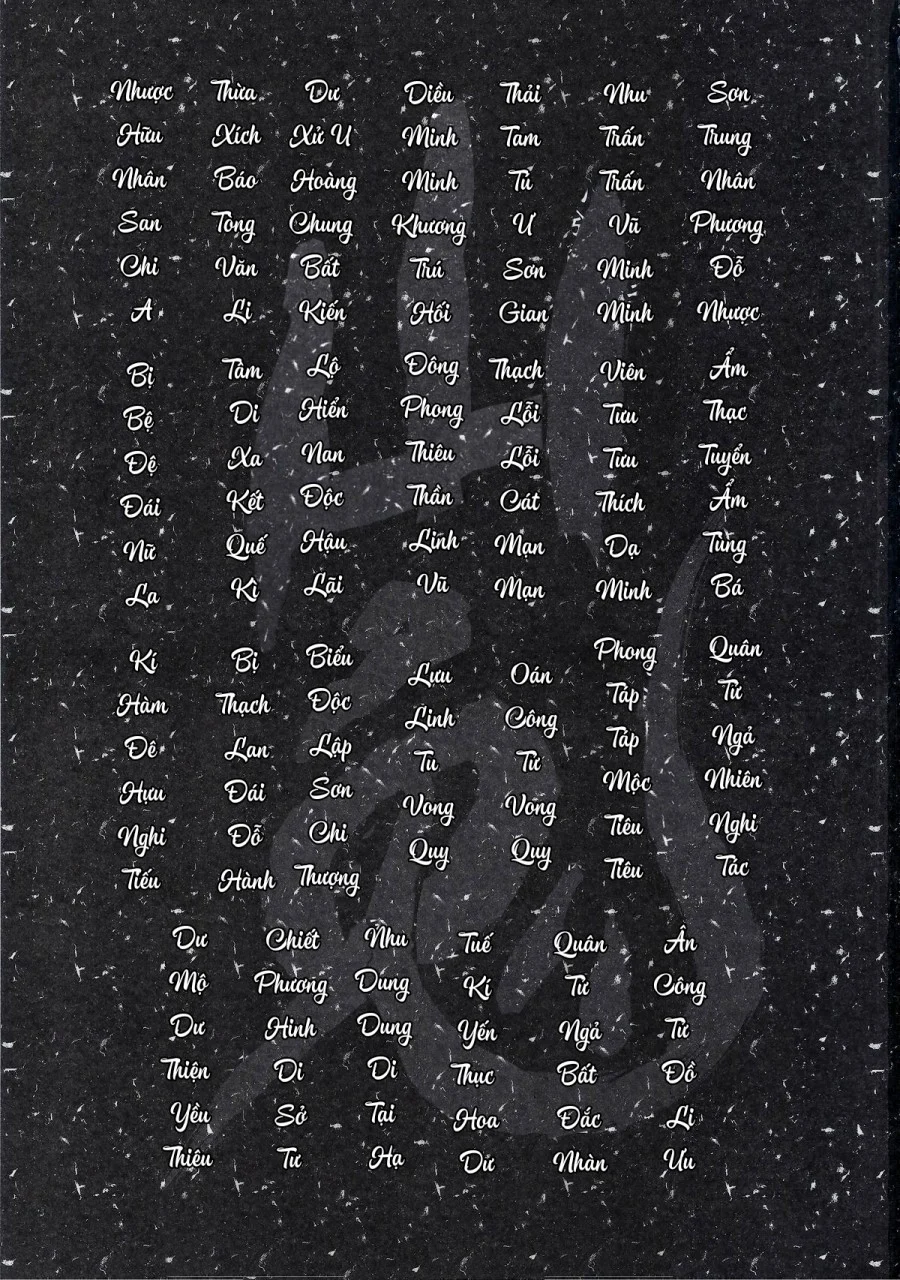 Nhược Hữu Nhân San Chi A
Bị Bệ Đệ Đái Nữ La
Kí Hàm Đê Hựu Nghi Tiếu
Dư Mộ Dư Thiện Yểu Thiêu
Thừa Xích Báo Tòng Văn Li
Tâm Di Xa Kết Quế Kì
Bị Thạch Lan Đái Đỗ Hành
Chiết Phương Hinh Di Sở Tư
Dư Xử U Hoàng Chung Bất Kiến
Lộ Hiển Nan Độc Hậu Lãi
Biểu Độc Lập Sơn Chi Thượng
Nhu Dung Dung Di Tại Hạ
Diều Minh Minh Khương Trú Hối
Đông Phong Thiêu Thần Linh Vũ
Lưu Linh Tu Vong Quy
Tuế Kí Yến Thục Hoa Dữ
Thải Tam Tú Ư Sơn Gian
Thạch Lỗi Lỗi Cát Mạn Mạn
Oán Công Tử Vong Quy
Quân Tư Ngả Bất Đắc Nhàn
Nhu Trấn Trấn Vũ Minh Minh
Viên Tưu Tưu Thích Dạ Minh
Phong Táp Táp Mộc Tiêu Tiêu
Ân Công Tử Đồ Li Ưu
Sơn Trung Nhân Phương Đỗ Nhược
Ẩm Thạc Tuyển Ẩm Tùng Bá
Quân Tư Ngả Nhiên Nghi Tác